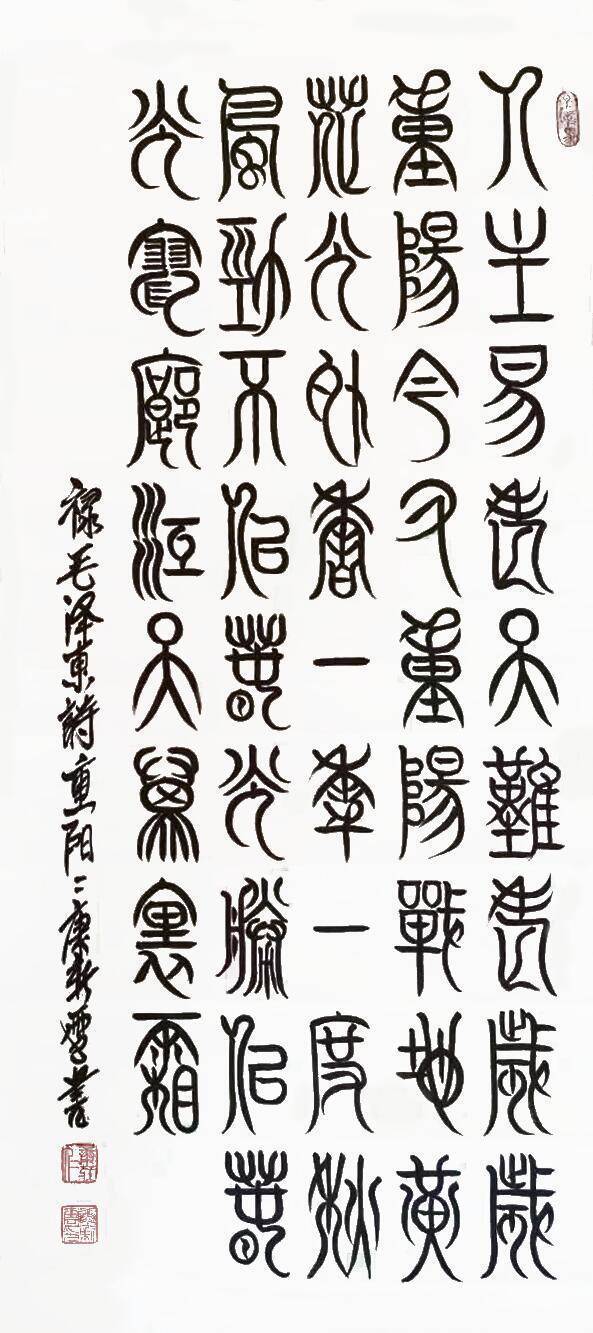 人生易老天難老歲歲
重陽今又重陽戰地黃
花分外香一年一度秋
風勁不似春光勝似春
光寥廓江天萬裏霜
禄毛泽東詩重阳